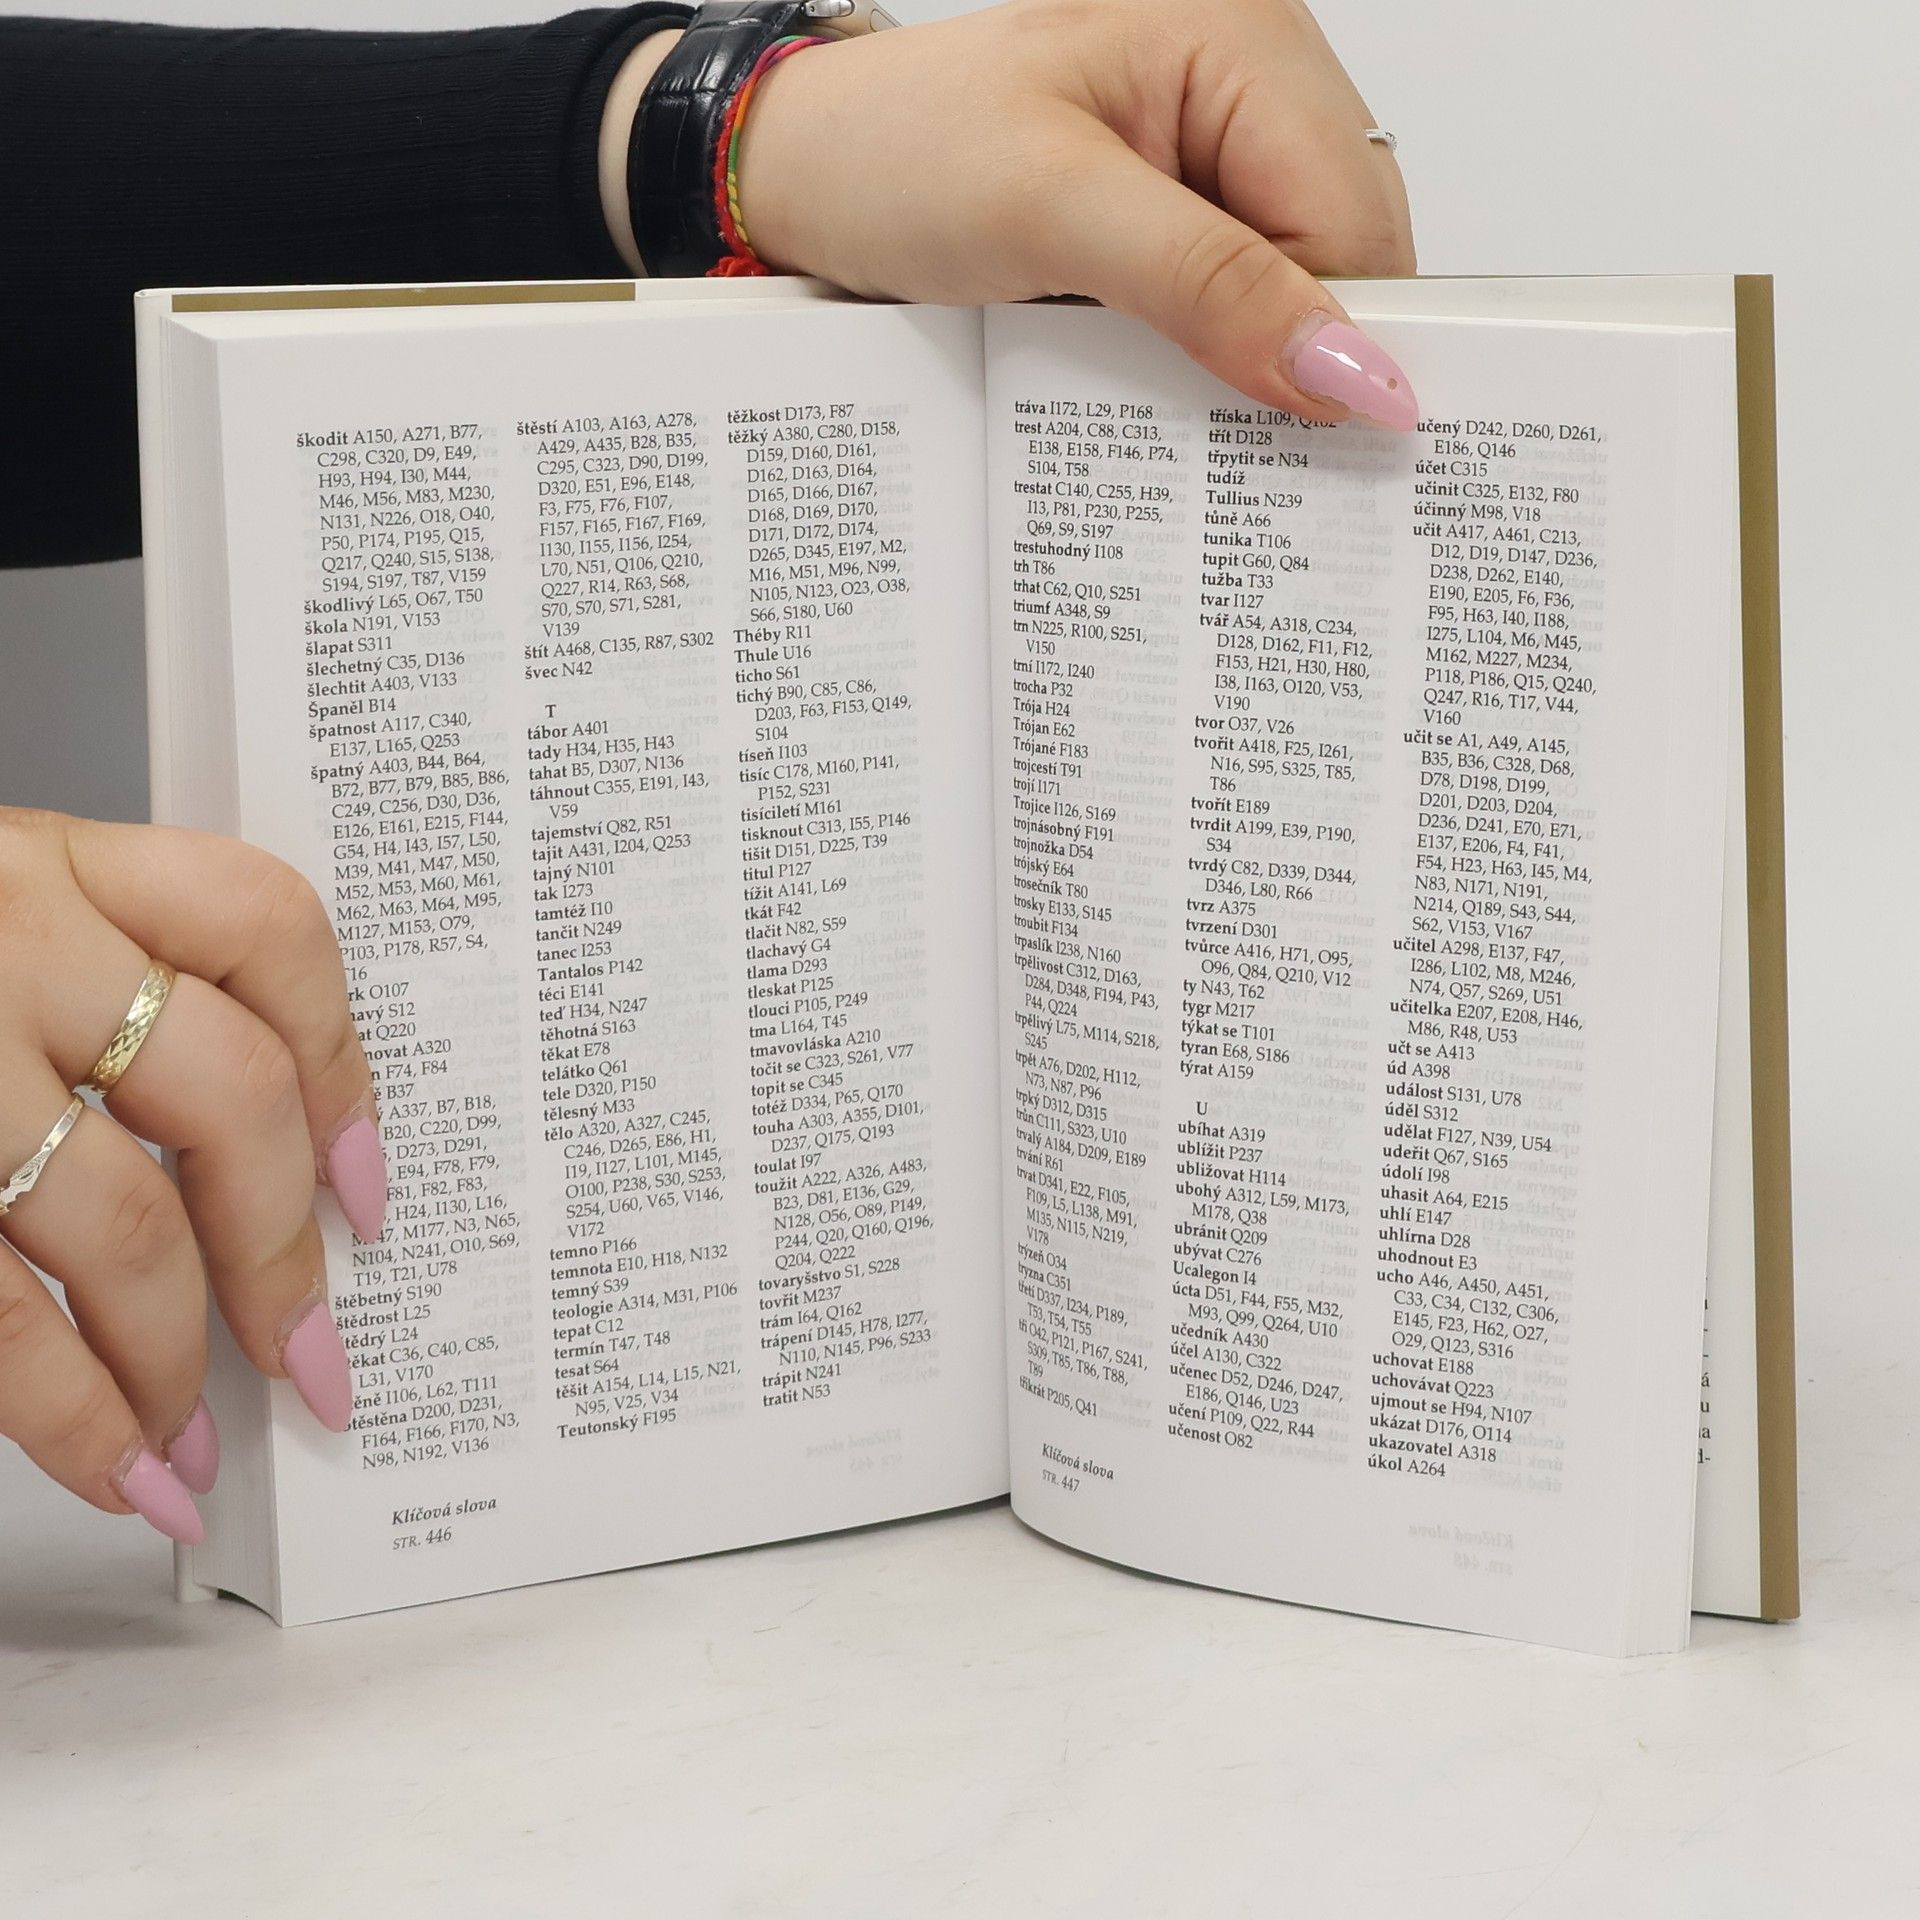 škodit A150, A271, B77,
C298, C320, D9, E49,
H93, H94, I30, M44,
M46, M56, M83, M230,
N131, N226, O18, O40,
P50, P174, P195, Q15,
Q217, Q240, S15, S138,
S194, S197, T87, V159
škodlivý L65, O67, T50
škola N191, V153
šlapat S311
šlechetný C35, D136
šlechtit A403, V133
Španěl B14
špatnost A117, C340,
E137, L165, Q253
špatný A403, B44, B64,
B72, B77, B79, B85, B86,
C249, C256, D30, D36,
E126, E161, E215, F144,
G54, H4, I43, I57, L50,
M39, M41, M47, M50,
M52, M53, M60, M61,
M62, M63, M64, M95,
M127, M153, O79,
P103, P178, R57, S4,
T16
O107
S12
Q220
A320
F74, F84
B37
A337, B7, B18,
B20, C220, D99,
D273, D291,
E94, F78, F79,
F81, F82, F83,
H24, I130, L16,
M177, N3, N65,
N104, N241, O10, S69,
T19, T21, U78
štěbetný S190
štědrost L25
štědrý L24
štěkat C36, C40, C85,
L31, V170
I106, L62, T111
štěstěna D200, D231,
F164, F166, F170, N3,
N98, N192, V136
štěstí A103, A163, A278,
A429, A435, B28, B35,
C295, C323, D90, D199,
D320, E51, E96, E148,
F3, F75, F76, F107,
F157, F165, F167, F169,
I130, I155, I156, I254,
L70, N51, Q106, Q210,
Q227, R14, R63, S68,
S70, S70, S71, S281,
V139
štít A468, C135, R87, S302
švec N42
T
tábor A401
tady H34, H35, H43
tahat B5, D307, N136
táhnout C355, E191, I43,
V59
tajemství Q82, R51
tajit A431, I204, Q253
tajný N101
tak I273
tamtéž I10
tančit N249
tanec I253
Tantalos P142
téci E141
teď H34, N247
těhotná S163
těkat E78
telátko Q61
tele D320, P150
tělesný M33
tělo A320, A327, C245,
C246, D265, E86, H1,
I19, I127, L101, M145,
O100, P238, S30, S253,
S254, U60, V65, V146,
V172
temno P166
temnota E10, H18, N132
temný S39
teologie A314, M31, P106
tepat C12
termín T47, T48
tesat S64
těšit A154, L14, L15, N21,
N95, V25, V34
Teutonský F195
těžkost D173, F87
těžký A380, C280, D158,
D159, D160, D161,
D162, D163, D164,
D165, D166, D167,
D168, D169, D170,
D171, D172, D174,
D265, D345, E197, M2,
M16, M51, M96, N99,
N105, N123, O23, O38,
S66, S180, U60
Théby R11
Thule U16
ticho S61
tichý B90, C85, C86,
D203, F63, F153, Q149,
S104
tíseň I103
tisíc C178, M160, P141,
P152, S231
tisíciletí M161
tisknout C313, I55, P146
tišit D151, D225, T39
titul P127
tížit A141, L69
tkát F42
tlačit N82, S59
tlachavý G4
tlama D293
tleskat P125
tlouci P105, P249
tma L164, T45
tmavovláska A210
točit se C323, S261, V77
topit se C345
totéž D334, P65, Q170
touha A303, A355, D101,
D237, Q175, Q193
toulat I97
toužit A222, A326, A483,
B23, D81, E136, G29,
N128, O56, O89, P149,
P244, Q20, Q160, Q196,
Q204, Q222
tovaryšstvo S1, S228
tovřit M237
trám I64, Q162
trápení D145, H78, I277,
N110, N145, P96, S233
trápit N241
tratit N53
Klíčová slova
STR. 446
tráva I172, L29, P168
trest A204, C88, C313,
E138, E158, F146, P74,
S104, T58
trestat C140, C255, H39,
I13, P81, P230, P255,
Q69, S9, S197
trestuhodný I108
trh T86
trhat C62, Q10, S251
triumf A348, S9
trn N225, R100, S251,
V150
trní I172, I240
trocha P32
Trója H24
Trójan E62
Trójané F183
trojcestí T91
trojí I171
Trojice I126, S169
trojnásobný F191
trojnožka D54
trójský E64
trosečník T80
trosky E133, S145
troubit F134
trpaslík I238, N160
trpělivost C312, D163,
D284, D348, F194, P43,
P44, Q224
trpělivý L75, M114, S218,
S245
trpět A76, D202, H112,
N73, N87, P96
trpký D312, D315
trůn C111, S323, U10
trvalý A184, D209, E189
trvání R61
trvat D341, E22, F105,
F109, L5, L138, M91,
M135, N115, N219,
V178
trýzeň O34
tryzna C351
třetí D337, I234, P189,
T53, T54, T55
tři O42, P121, P167, S241,
S309, T85, T86, T88,
T89
třikrát P205, Q41
Klíčová slova
STR. 447
tříska L109, Q162
třít D128
třpytit se N34
tudíž
Tullius N239
tůně A66
tunika T106
tupit G60, Q84
tužba T33
tvar I127
tvář A54, A318, C234,
D128, D162, F11, F12,
F153, H21, H30, H80,
I38, I163, O120, V53,
V190
tvor O37, V26
tvořit A418, F25, I261,
N16, S95, S325, T85,
T86
tvořít E189
tvrdit A199, E39, P190,
S34
tvrdý C82, D339, D344,
D346, L80, R66
tvrz A375
tvrzení D301
tvůrce A416, H71, O95,
O96, Q84, Q210, V12
ty N43, T62
tygr M217
týkat se T101
tyran E68, S186
týrat A159
U
ubíhat A319
ublížit P237
ubližovat H114
ubohý A312, L59, M173,
M178, Q38
ubránit Q209
ubývat C276
Ucalegon I4
úcta D51, F44, F55, M32,
M93, Q99, Q264, U10
učedník A430
účel A130, C322
učenec D52, D246, D247,
E186, Q146, U23
učení P109, Q22, R44
učenost O82
učený D242, D260, D261,
E186, Q146
účet C315
učinit C325, E132, F80
účinný M98, V18
učit A417, A461, C213,
D12, D19, D147, D236,
D238, D262, E140,
E190, E205, F6, F36,
F95, H63, I40, I188,
I275, L104, M6, M45,
M162, M227, M234,
P118, P186, Q15, Q240,
Q247, R16, T17, V44,
V160
učit se A1, A49, A145,
B35, B36, C328, D68,
D78, D198, D199,
D201, D203, D204,
D236, D241, E70, E71,
E137, E206, F4, F41,
F54, H23, H63, I45, M4,
N83, N171, N191,
N214, Q189, S43, S44,
S62, V153, V167
učitel A298, E137, F47,
I286, L102, M8, M246,
N74, Q57, S269, U51
učitelka E207, E208, H46,
M86, R48, U53
učt se A413
úd A398
událost S131, U78
úděl S312
udělat F127, N39, U54
udeřit Q67, S165
údolí I98
uhasit A64, E215
uhlí E147
uhlírna D28
uhodnout E3
ucho A46, A450, A451,
C33, C34, C132, C306,
E145, F23, H62, O27,
O29, Q123, S316
uchovat E188
uchovávat Q223
ujmout se H94, N107
ukázat D176, O114
ukazovatel A318
úkol A264